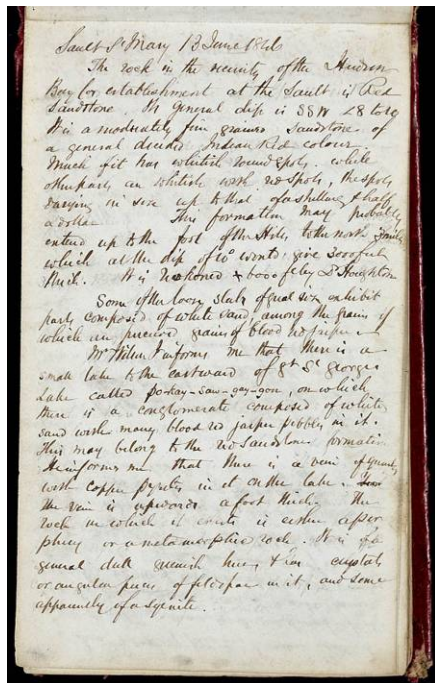 Sault St Mary 13 June 1846
The rock in the vicinity of the Hudson
Bay Co establishment at the Sault is Red
Sandstone. Its general dip is SSW
It is a moderately fine grained Sandstone of
a general decided Indian Red colour
Much of it has whitish round spots. while
other parts are whitish with red spots, the spots
varying in size up to that of a shilling & half
a dollar This formation may probably
extend up to the foot of the Hills to the north
which at the dip of 10° would give 5000 feet
thick. It is reckoned by Dr Houghton
Some of the loose slabs of great size exhibit
parts composed of white sand, among the grains of
which are perceived grains of blood red jasper
Mr Wilson informs me that there is a
small lake to the eastward of Gt St Georges
Lake called on which
there is a conglomerate composed of white
sand with many blood red jasper pebbles in it.
This may belong to the red Sandstone formation
He informs me that there is a vein of quartz
with copper pyrites in it on the lake.
The vein is upwards a foot thick. The
rock in which it exists is either a por
phyry or a metamorphic rock. It is of a
general dull greenish hue, & has crystals
or angular pieces of feldspar in it, and some
apparently of a syenite.